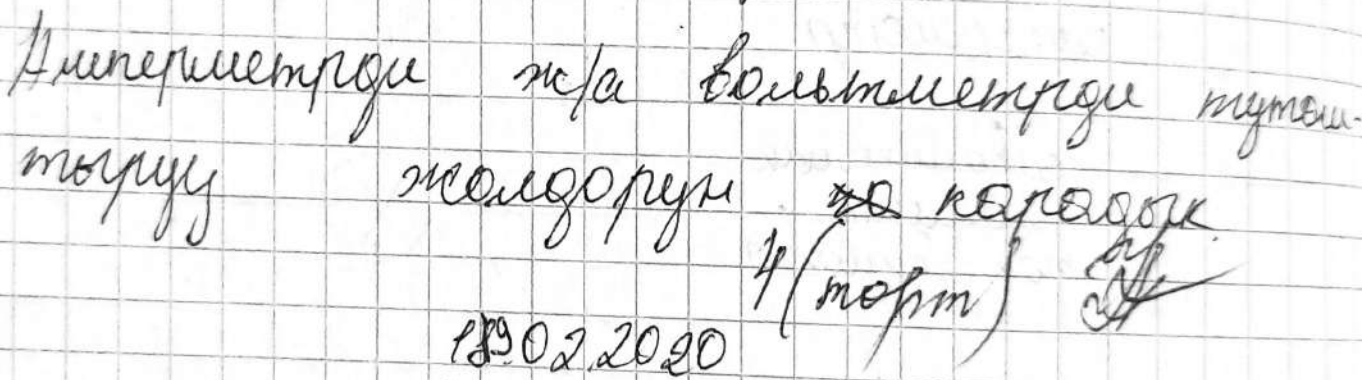 Амперметрди ж/а вольтметрди тутош-
тыруу жолдорун карадык.
4 (торт)
19.02.2020